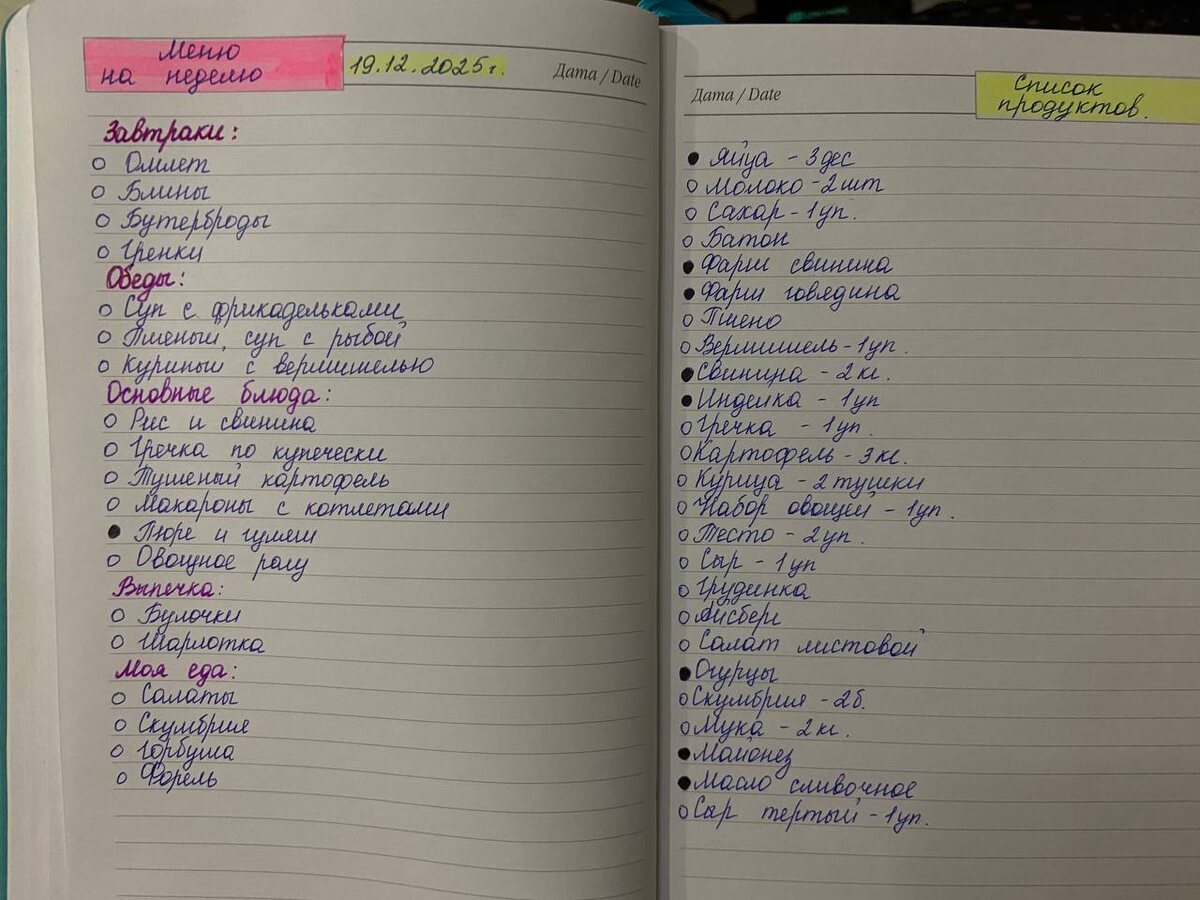 Меню
на неделю
19.12.2025г.
Дата / Date
Завтраки:
○ Омлет
○ Блины
○ Бутерброды
○ Гренки
Обеды:
○ Суп с фрикадельками
○ Пшеный суп с рыбой
○ Куриный с вермишелью
Основные блюда:
○ Рис и свинина
○ Гречка по купечески
○ Тушеный картофель
○ Макароны с котлетами
● Пюре и гуляш
○ Овощное рагу
Выпечка:
○ Булочки
○ Шарлотка
Моя еда:
○ Салаты
○ Скумбрия
○ Горбуша
○ Форель
Дата / Date
Список
продуктов.
● Яйца - 3 дес
○ Молоко - 2 шт
○ Сахар - 1 уп.
○ Батон
● Фарш свинина
● Фарш говядина
○ Пшено
○ Вермишель - 1 уп.
● Свинина - 2 кг.
● Индейка - 1 уп
○ Гречка - 1 уп.
○ Картофель - 3 кг.
○ Курица - 2 тушки
○ Набор овощей - 1 уп.
○ Тесто - 2 уп.
○ Сыр - 1 уп
○ Грудинка
○ Айсберг
○ Салат листовой
● Огурцы
○ Скумбрия - 2 б.
○ Мука - 2 кг.
● Майонез
● Масло сливочное
○ Сыр тертый - 1 уп.